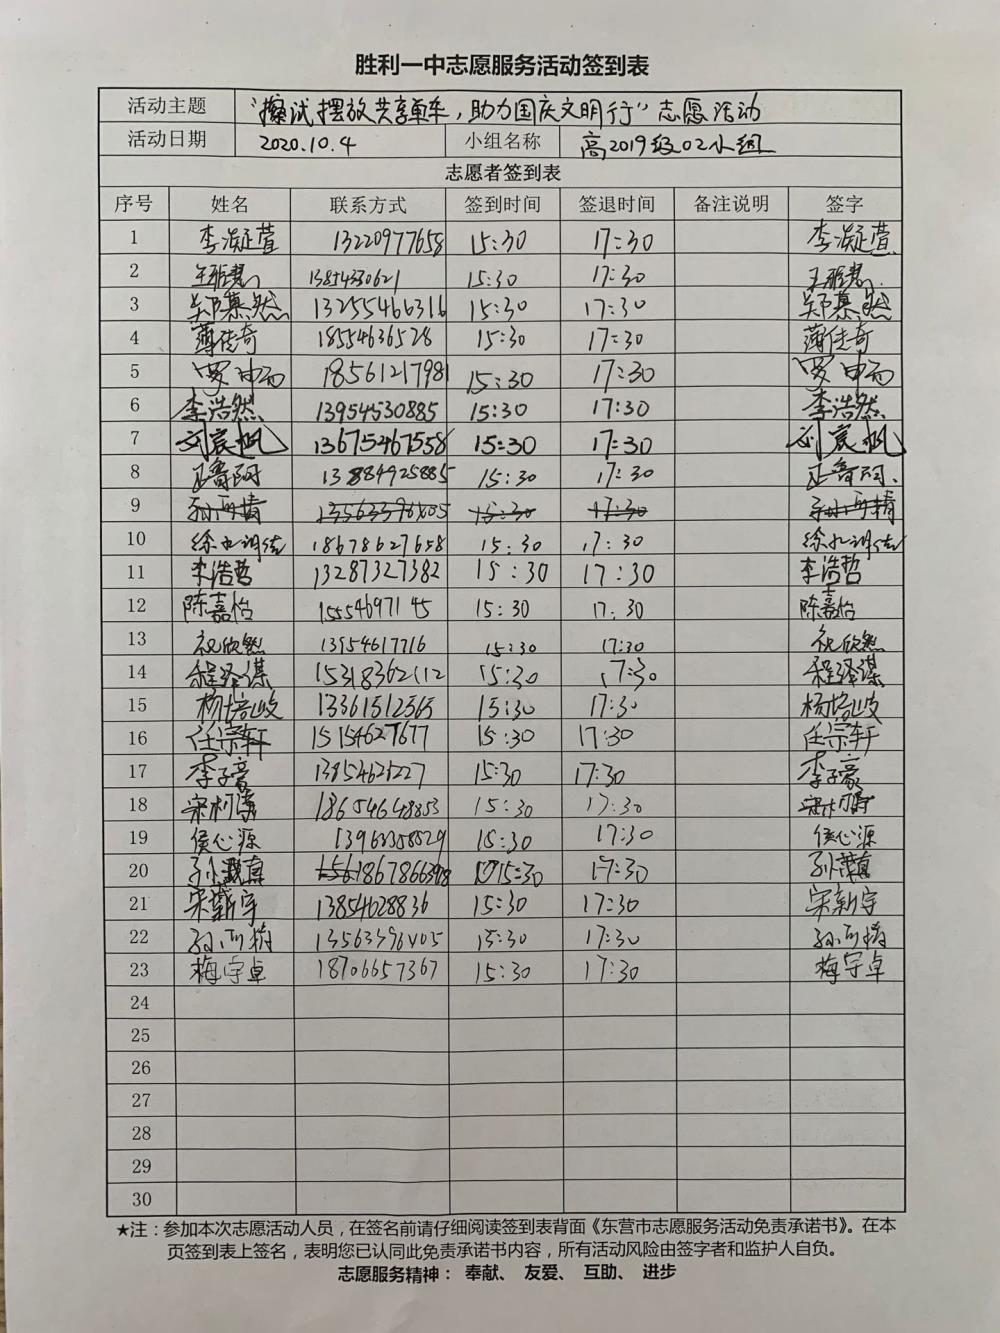 胜利一中志愿服务活动签到表
活动主题 “擦拭摆放共享单车，助力国庆文明行”志愿活动
活动日期 2020.10.4 小组名称 高2019级02小组
志愿者签到表
序号 姓名 联系方式 签到时间 签退时间 备注说明 签字
1 李凝萱 13220977658 15:30 17:30 李凝萱
2 13854330621 15:30 17:30
3 郑慕然 13255466316 15:30 17:30 郑慕然
4 薄传奇 18554636528 15:30 17:30 薄传奇
5 罗申雨 18561217981 15:30 17:30 罗申雨
6 李浩然 13954530885 15:30 17:30 李浩然
7 刘宸帆 13675467558 15:30 17:30 刘宸帆
8 13884925885 15:30 17:30
9 13563396405 15:30 17:30
10 18678627658 15:30 17:30
11 李浩哲 13287327382 15:30 17:30 李浩哲
12 陈嘉怡 15554697145 15:30 17:30 陈嘉怡
13 祝欣然 13954617716 15:30 17:30 祝欣然
14 程泽谋 15318362112 15:30 17:30 程泽谋
15 杨培峻 13361512565 15:30 17:30 杨培峻
16 任宗轩 15154627677 15:30 17:30 任宗轩
17 李子豪 13854621227 15:30 17:30 李子豪
18 18654648353 15:30 17:30
19 侯心源 13963358529 15:30 17:30 侯心源
20 15:30 17:30
21 宋新宇 13854628836 15:30 17:30 宋新宇
22 13563396405 15:30 17:30
23 梅宇卓 18706657367 15:30 17:30 梅宇卓
24
25
26
27
28
29
30
★注：参加本次志愿活动人员，在签名前请仔细阅读签到表背面《东营市志愿服务活动免责承诺书》。在本
页签到表上签名，表明您已认同此免责承诺书内容，所有活动风险由签字者和监护人自负。
志愿服务精神： 奉献、 友爱、 互助、 进步